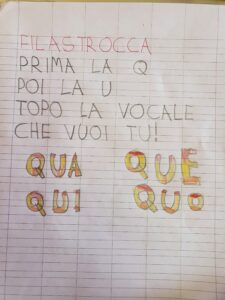 FILASTROCCA
PRIMA LA Q
POI LA U
TOPO LA VOCALE
CHE VUOI TU!
QUA QUE
QUI QUO